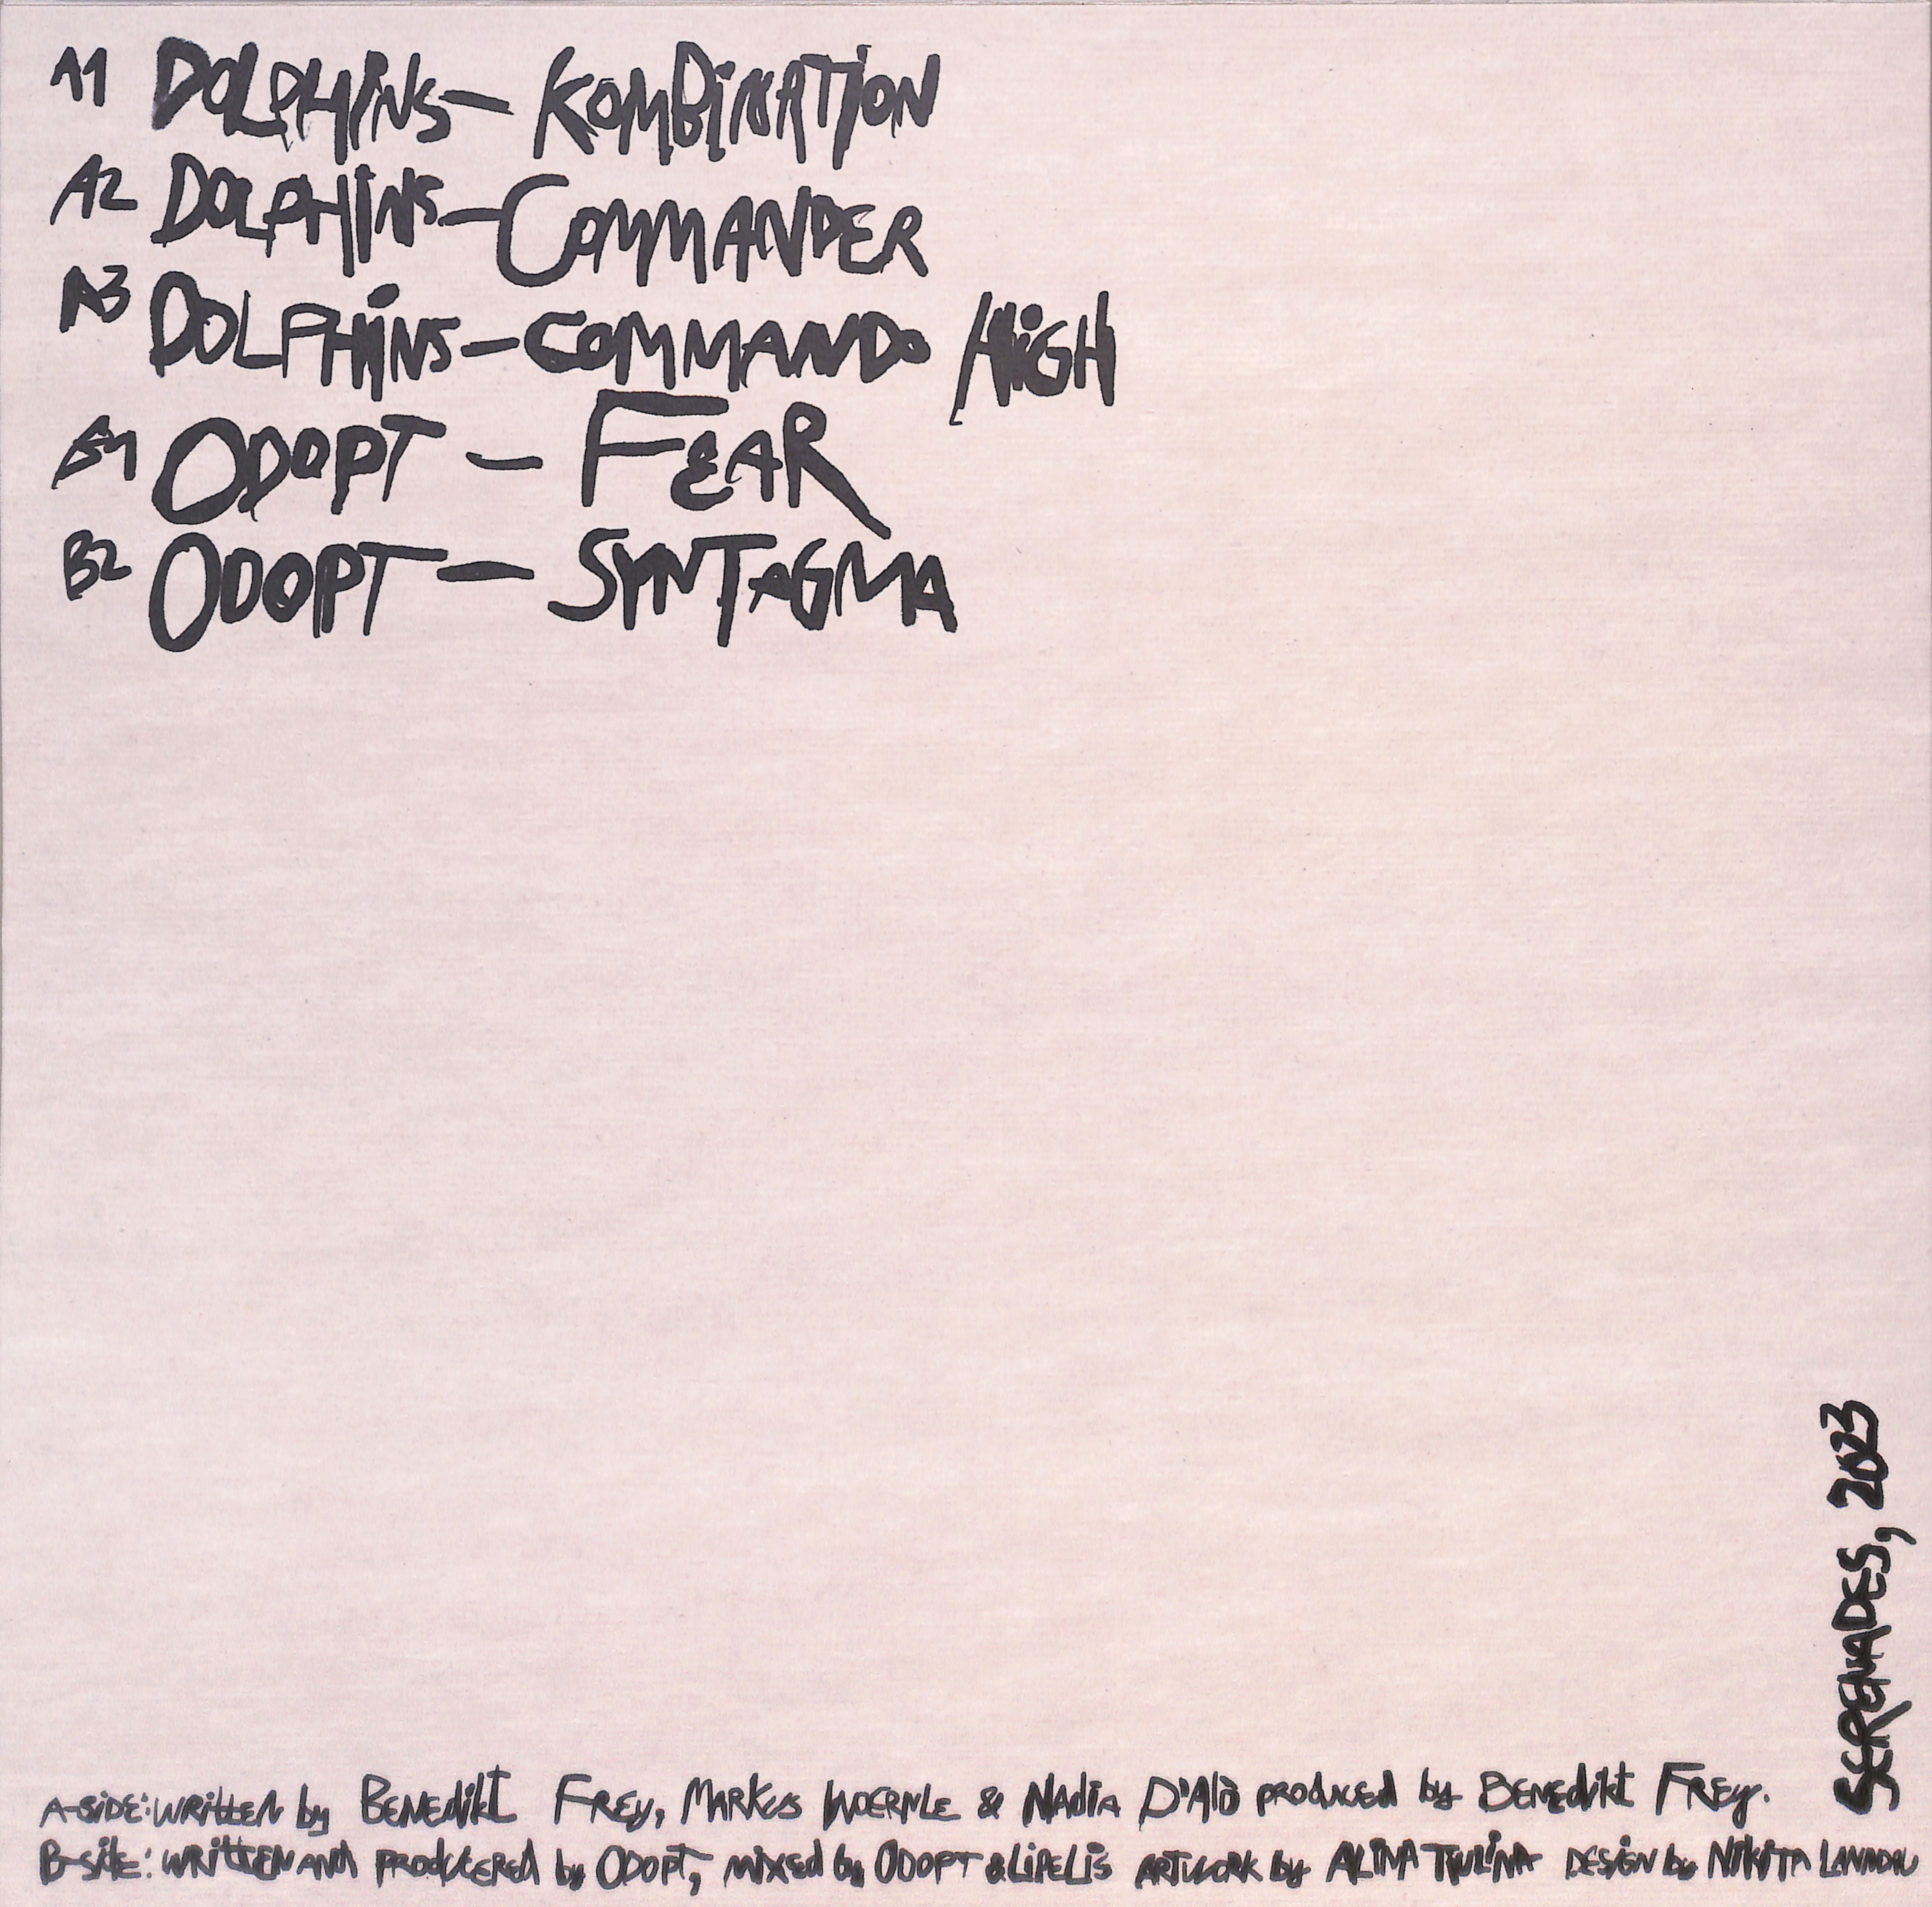 A1 DOLPHINS — KOMBINATION
A2 DOLPHINS — COMMANDER
A3 DOLPHINS — COMMANDO HIGH
B1 ODOPT — FEAR
B2 ODOPT — SYNTAGMA
SERENADES, 2023
A-SIDE: WRITTEN by BENEDIKT FREY, MARKUS WOERNLE & NADIA D'Alò produced by BENEDIKT FREY.
B-side: WRITTEN AND PRODUCERED by ODOPT, mixed by ODOPT & LIPELIS ARTWORK by ALINA DESIGN by NIKITA